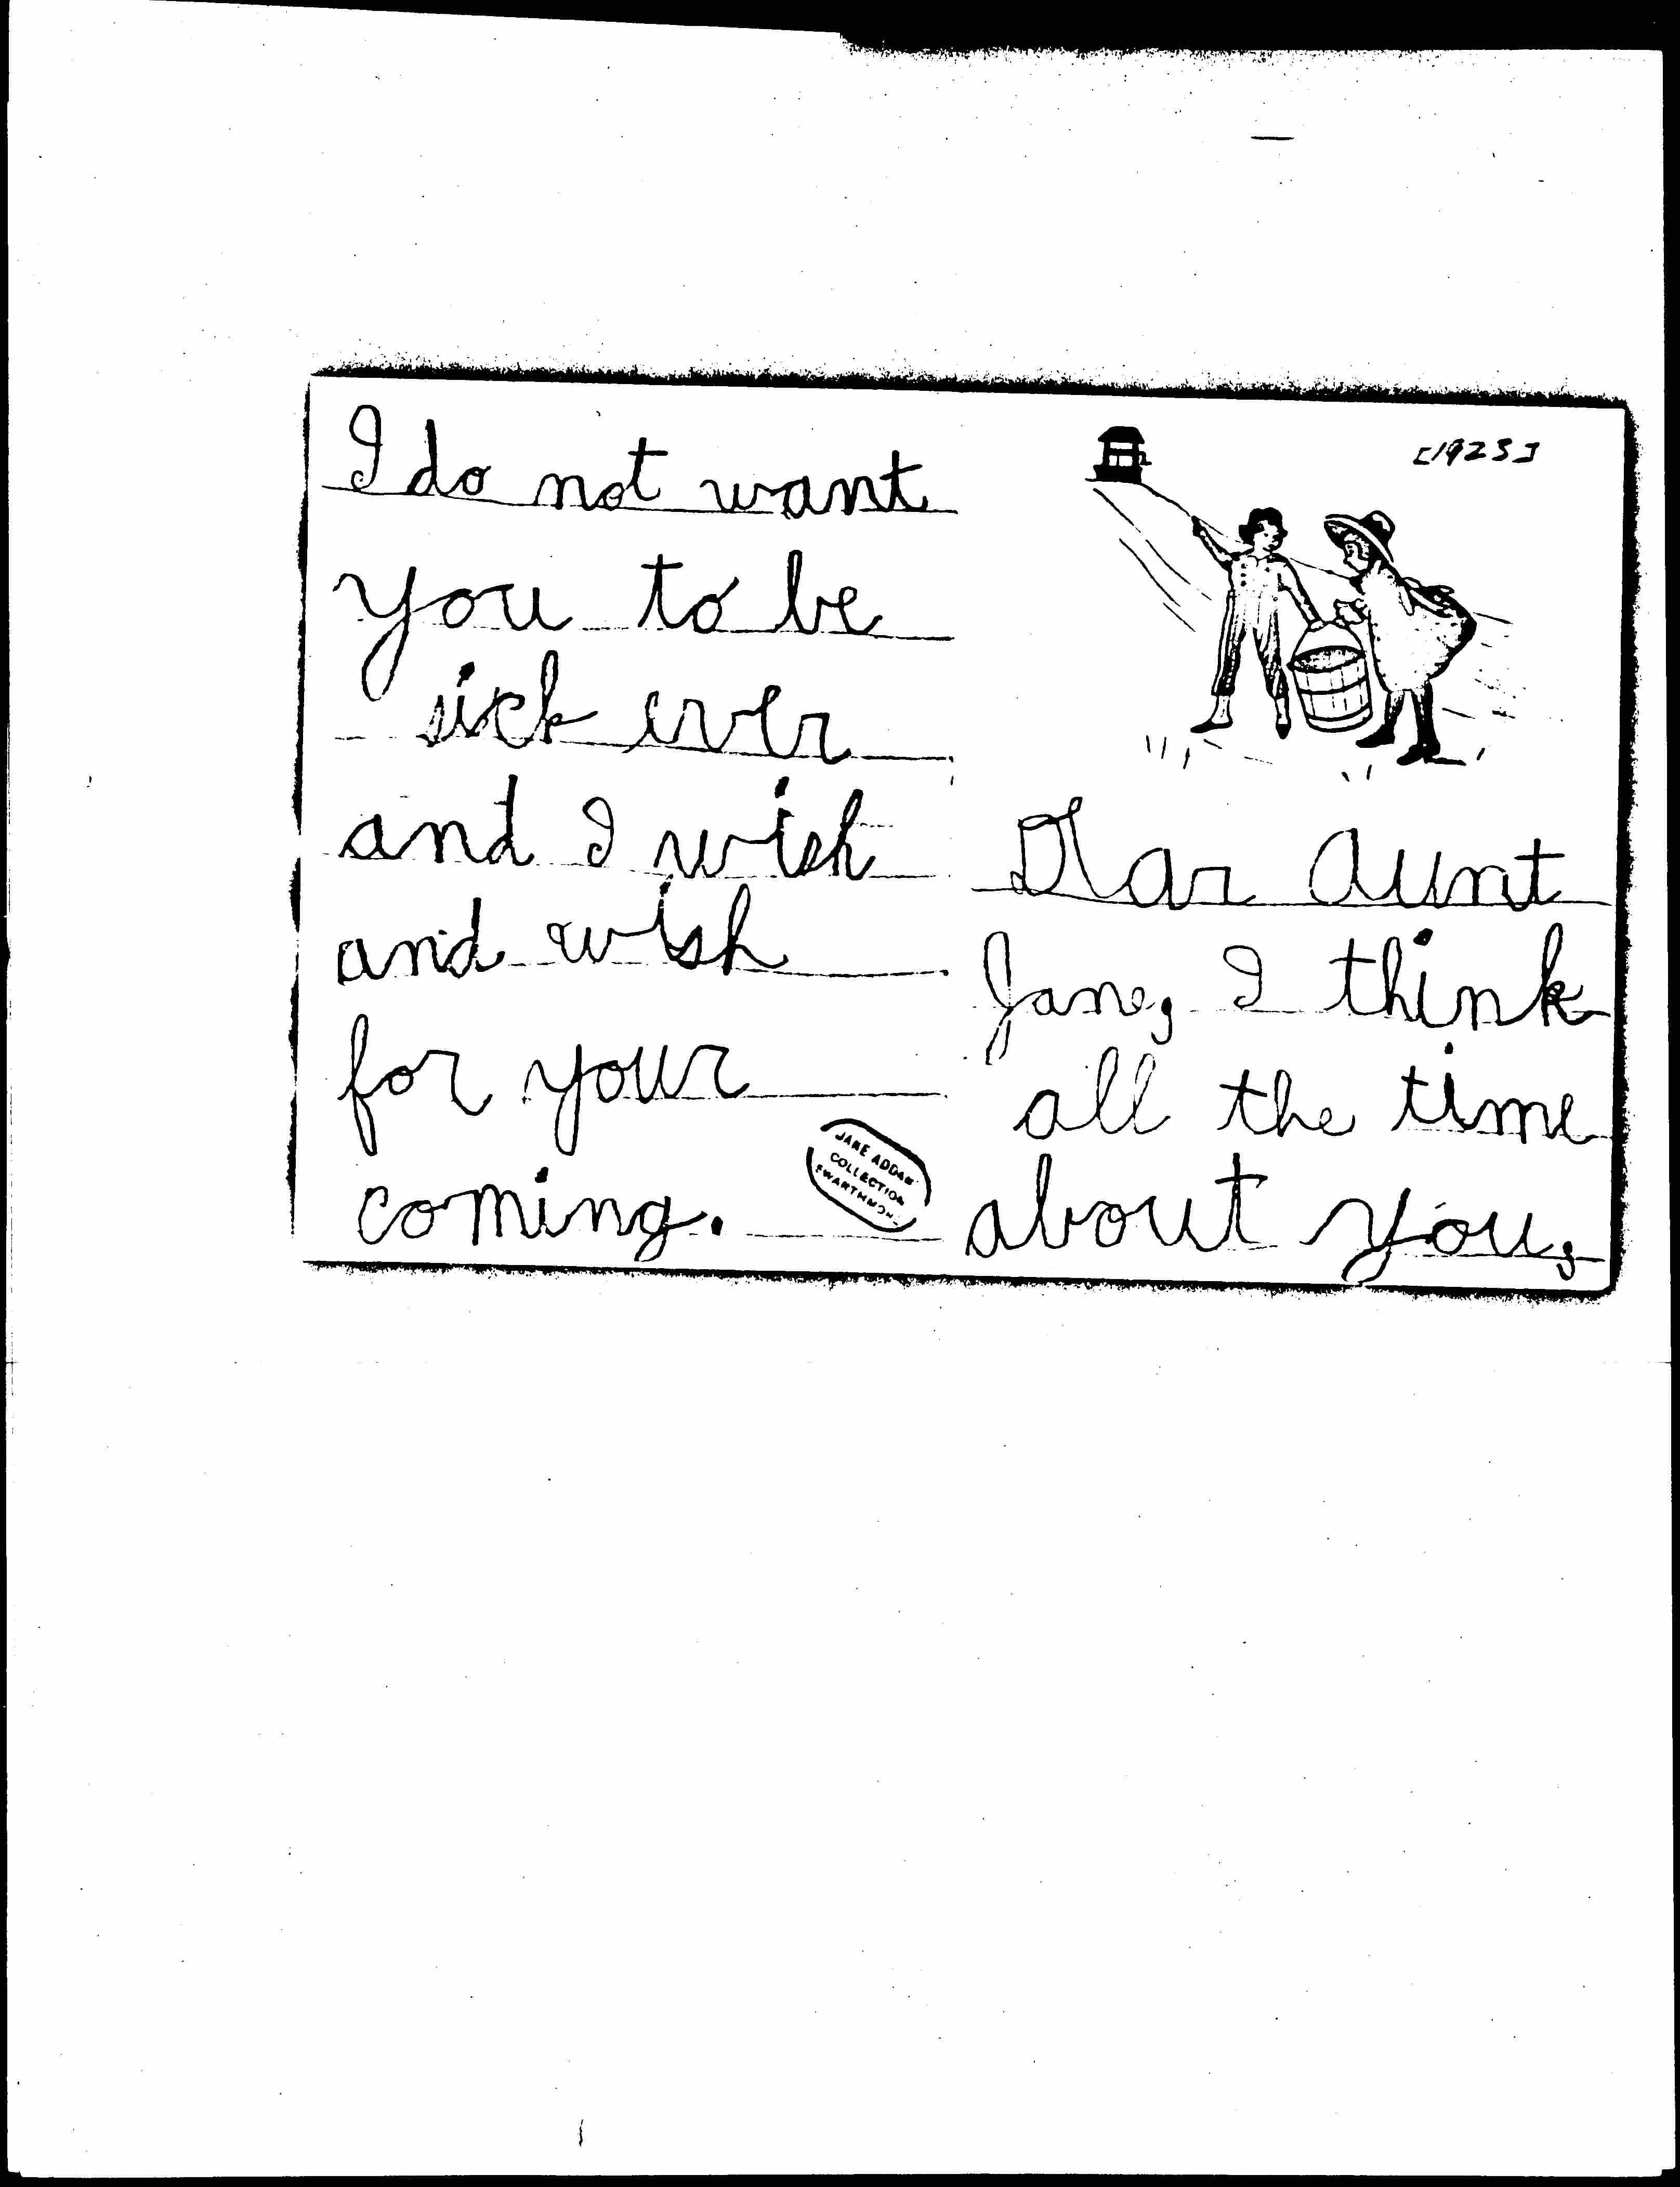 [1923]
Dear Aunt
Jane, I think
all the time
about you,
I do not want
you to be
sick ever
and I wish
and wish
for your
coming.
JANE ADDAMS
COLLECTION
SWARTHMORE